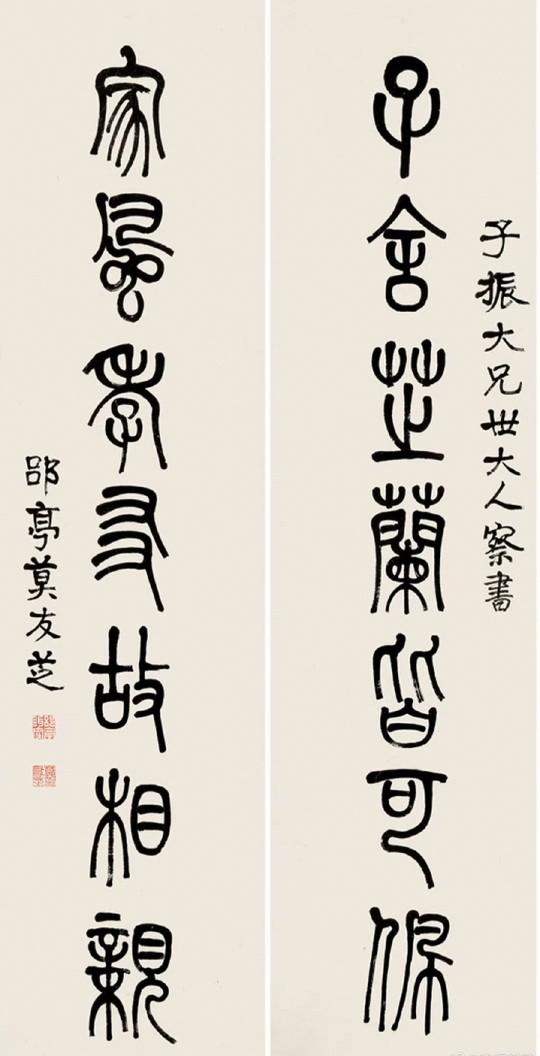 子振大兄世大人察書
子舍芝蘭皆可佩
家風孝友故相親
郘亭莫友芝